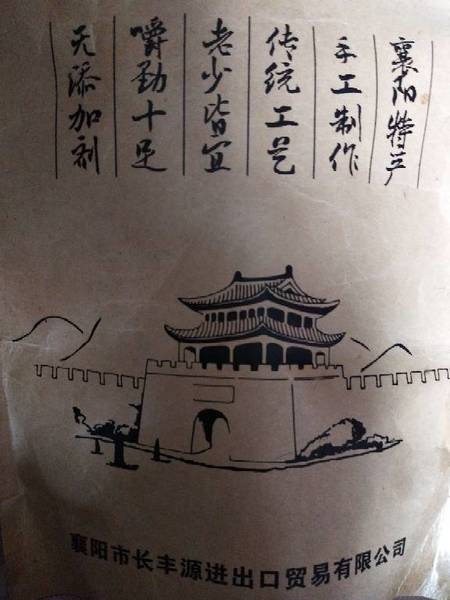 襄阳特产
手工制作
传统工艺
老少皆宜
嚼劲十足
无添加剂
襄阳市长丰源进出口贸易有限公司